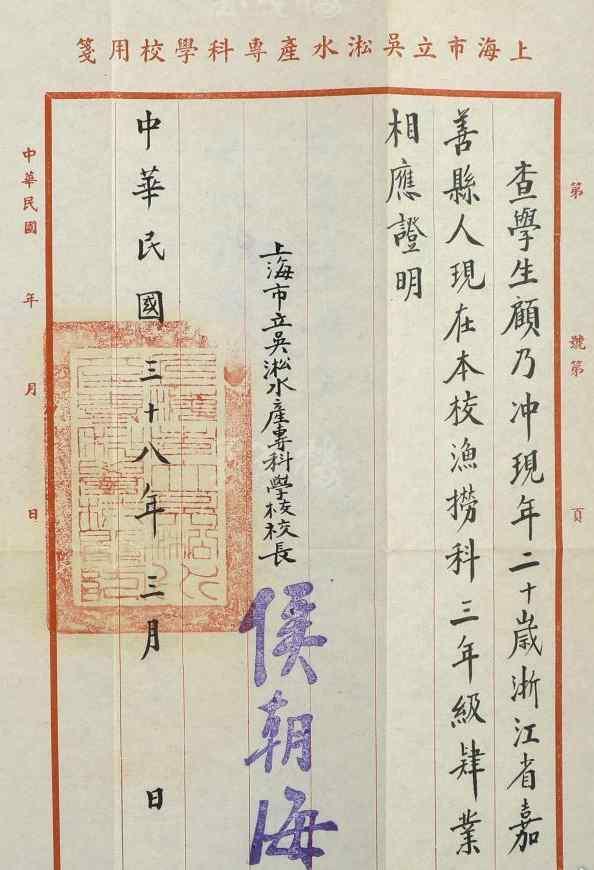 上海市立吳淞水產專科學校用箋
第　號第　頁
查學生顧乃沖現年二十歲浙江省嘉
善縣人現在本校漁撈科三年級肄業
相應證明
上海市立吳淞水產專科學校校長
侯朝海
中華民國三十八年三月　日
中華民國　年　月　日